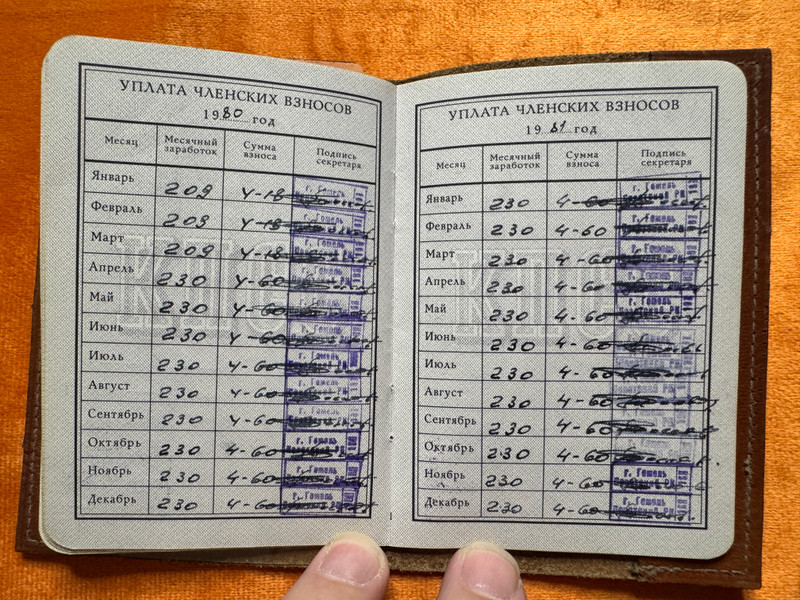 УПЛАТА ЧЛЕНСКИХ ВЗНОСОВ
1980 год
Месяц Месячный заработок Сумма взноса Подпись секретаря
Январь 209 4-18 г. Гомель
Февраль 209 4-18 г. Гомель
Март 209 4-18 г. Гомель
Апрель 230 4-60 г. Гомель
Май 230 4-60 г. Гомель
Июнь 230 4-60 г. Гомель
Июль 230 4-60 г. Гомель
Август 230 4-60 г. Гомель
Сентябрь 230 4-60 г. Гомель
Октябрь 230 4-60 г. Гомель
Ноябрь 230 4-60 г. Гомель
Декабрь 230 4-60 г. Гомель
КПСС
УПЛАТА ЧЛЕНСКИХ ВЗНОСОВ
1981 год
Месяц Месячный заработок Сумма взноса Подпись секретаря
Январь 230 4-60 г. Гомель
Февраль 230 4-60 г. Гомель
Март 230 4-60 г. Гомель
Апрель 230 4-60 г. Гомель
Май 230 4-60 г. Гомель
Июнь 230 4-60
Июль 230 4-60
Август 230 4-60
Сентябрь 230 4-60
Октябрь 230 4-60
Ноябрь 230 4-60 г. Гомель
Декабрь 230 4-60 г. Гомель
КПСС